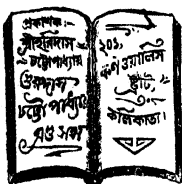 প্রকাশক:—
শ্রীহরিদাস
চট্টোপাধ্যায়
গুরুদাস
চট্টোপাধ্যায়
এণ্ড সন্স
২০১,
কর্ণওয়ালিস
ষ্ট্রীট,
কলিকাতা।